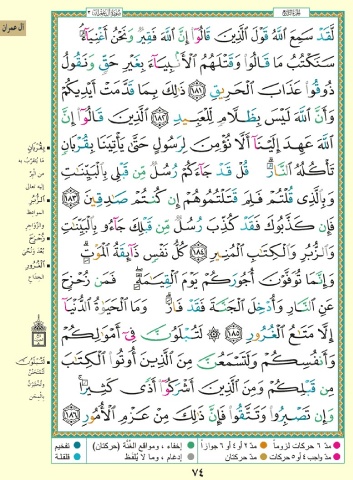 آل عمران
لَّقَدْ سَمِعَ اللَّهُ قَوْلَ الَّذِينَ قَالُوا إِنَّ اللَّهَ فَقِيرٌ وَنَحْنُ أَغْنِيَاءُ
سَنَكْتُبُ مَا قَالُوا وَقَتْلَهُمُ الْأَنبِيَاءَ بِغَيْرِ حَقٍّ وَنَقُولُ
ذُوقُوا عَذَابَ الْحَرِيقِ ١٨١ ذَٰلِكَ بِمَا قَدَّمَتْ أَيْدِيكُمْ
وَأَنَّ اللَّهَ لَيْسَ بِظَلَّامٍ لِّلْعَبِيدِ ١٨٢ الَّذِينَ قَالُوا إِنَّ
اللَّهَ عَهِدَ إِلَيْنَا أَلَّا نُؤْمِنَ لِرَسُولٍ حَتَّىٰ يَأْتِيَنَا بِقُرْبَانٍ
تَأْكُلُهُ النَّارُ قُلْ قَدْ جَاءَكُمْ رُسُلٌ مِّن قَبْلِي بِالْبَيِّنَاتِ
وَبِالَّذِي قُلْتُمْ فَلِمَ قَتَلْتُمُوهُمْ إِن كُنتُمْ صَادِقِينَ ١٨٣
فَإِن كَذَّبُوكَ فَقَدْ كُذِّبَ رُسُلٌ مِّن قَبْلِكَ جَاءُو بِالْبَيِّنَاتِ
وَالزُّبُرِ وَالْكِتَابِ الْمُنِيرِ ١٨٤ كُلُّ نَفْسٍ ذَائِقَةُ الْمَوْتِ
وَإِنَّمَا تُوَفَّوْنَ أُجُورَكُمْ يَوْمَ الْقِيَامَةِ فَمَن زُحْزِحَ
عَنِ النَّارِ وَأُدْخِلَ الْجَنَّةَ فَقَدْ فَازَ وَمَا الْحَيَاةُ الدُّنْيَا
إِلَّا مَتَاعُ الْغُرُورِ ١٨٥ لَتُبْلَوُنَّ فِي أَمْوَالِكُمْ
وَأَنفُسِكُمْ وَلَتَسْمَعُنَّ مِنَ الَّذِينَ أُوتُوا الْكِتَابَ
مِن قَبْلِكُمْ وَمِنَ الَّذِينَ أَشْرَكُوا أَذًى كَثِيرًا
وَإِن تَصْبِرُوا وَتَتَّقُوا فَإِنَّ ذَٰلِكَ مِنْ عَزْمِ الْأُمُورِ ١٨٦
بِقُرْبَانٍ
الزُّبُرِ
زُحْزِحَ
الْغُرُورِ
لَتُبْلَوُنَّ
مدّ ٦ حركات لزوماً مدّ ٢ أو ٤ أو ٦ جوازاً إخفاء، ومواقع الغُنَّة (حركتان) تفخيم
مدّ واجب ٤ أو ٥ حركات مدّ حركتان إدغام، وما لا يُلفَظ قلقلة
٧٤